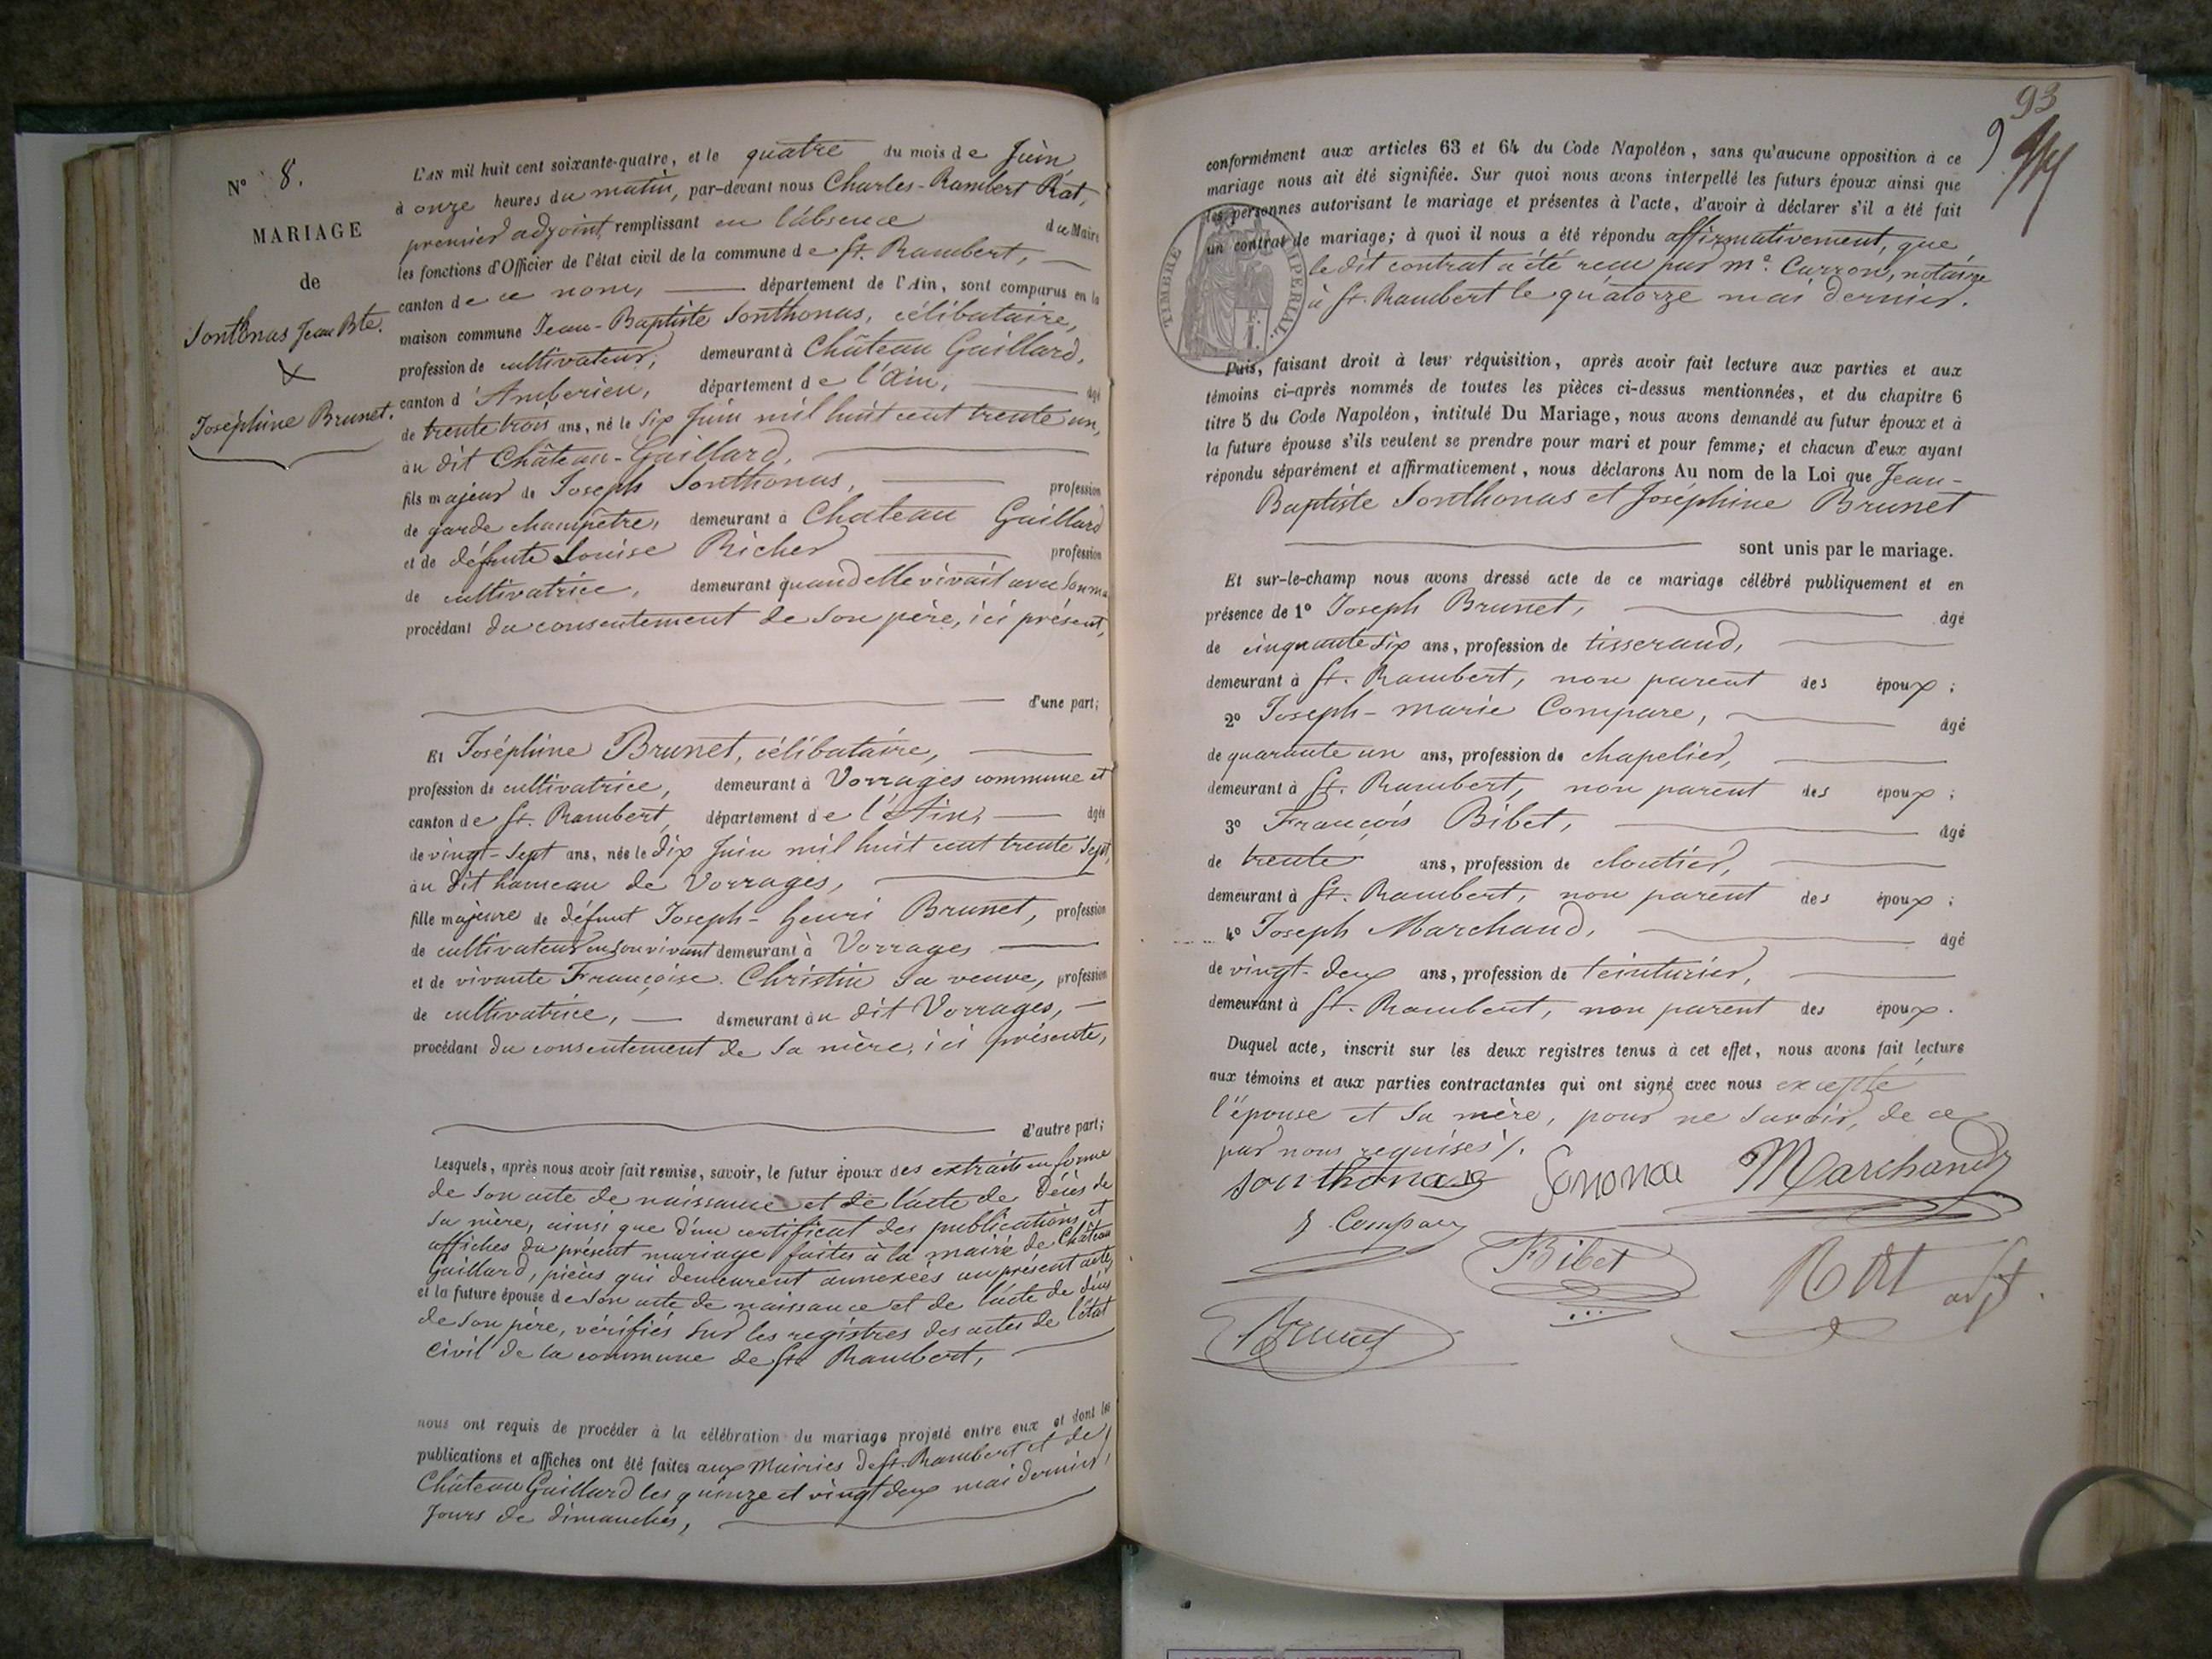 N° 8.
MARIAGE
de
Sonthonas Jean Bte.
X
Joséphine Brunet.
L'AN mil huit cent soixante-quatre, et le quatre du mois de Juin
à onze heures du matin, par-devant nous Charles-Rambert Rat,
premier adjoint, remplissant en l'absence du Maire
les fonctions d'Officier de l'état civil de la commune de St. Rambert,
canton de ce nom, département de l'Ain, sont comparus en la
maison commune Jean-Baptiste Sonthonas, célibataire,
profession de cultivateur, demeurant à Château Gaillard,
canton d'Amberieu, département de l'Ain, âgé
de trente trois ans, né le six Juin mil huit cent trente un,
au dit Château-Gaillard,
fils majeur de Joseph Sonthonas, profession
de garde champêtre, demeurant à Chateau Gaillard
et de défunte Louise Richer profession
de cultivatrice, demeurant quand elle vivait avec son ma
procédant du consentement de son père, ici présent,
d'une part;
Et Joséphine Brunet, célibataire,
profession de cultivatrice, demeurant à Vorrages commune et
canton de St. Rambert, département de l'Ain, âgée
de vingt-sept ans, née le dix Juin mil huit cent trente sept,
au dit hameau de Vorrages,
fille majeure de défunt Joseph-henri Brunet, profession
de cultivateur en son vivant demeurant à Vorrages
et de vivante Françoise Christin sa veuve, profession
de cultivatrice, demeurant au dit Vorrages,
procédant du consentement de sa mère, ici présente,
d'autre part;
Lesquels, après nous avoir fait remise, savoir, le futur époux des extraits en forme
de son acte de naissance et de l'acte de décès de
sa mère, ainsi que d'un certificat des publications et
affiches du présent mariage faites à la mairie de Château
Gaillard, pièces qui demeurent annexées au présent acte,
et la future épouse de son acte de naissance et de l'acte de décès
de son père, vérifiés sur les registres des actes de l'état
civil de la commune de St. Rambert,
nous ont requis de procéder à la célébration du mariage projeté entre eux et dont les
publications et affiches ont été faites aux Mairies de St. Rambert et de
Château Gaillard les quinze et vingt deux mai dernier,
jours de dimanches,
93
conformément aux articles 63 et 64 du Code Napoléon, sans qu'aucune opposition à ce
mariage nous ait été signifiée. Sur quoi nous avons interpellé les futurs époux ainsi que
les personnes autorisant le mariage et présentes à l'acte, d'avoir à déclarer s'il a été fait
un contrat de mariage; à quoi il nous a été répondu affirmativement, que
le dit contrat a été recu par Me. Carron, notaire
à St. Rambert le quatorze mai dernier.
TIMBRE IMPERIAL
Puis, faisant droit à leur réquisition, après avoir fait lecture aux parties et aux
témoins ci-après nommés de toutes les pièces ci-dessus mentionnées, et du chapitre 6
titre 5 du Code Napoléon, intitulé Du Mariage, nous avons demandé au futur époux et à
la future épouse s'ils veulent se prendre pour mari et pour femme; et chacun d'eux ayant
répondu séparément et affirmativement, nous déclarons Au nom de la Loi que Jean-
Baptiste Sonthonas et Joséphine Brunet
sont unis par le mariage.
Et sur-le-champ nous avons dressé acte de ce mariage célébré publiquement et en
présence de 1° Joseph Brunet, âgé
de cinquante six ans, profession de tisserand,
demeurant à St. Rambert, non parent des époux;
2° Joseph-marie Compare, âgé
de quarante un ans, profession de chapelier,
demeurant à St. Rambert, non parent des époux;
3° François Bibet, âgé
de trente ans, profession de cloutier,
demeurant à St. Rambert, non parent des époux;
4° Joseph Marchand, âgé
de vingt-deux ans, profession de teinturier,
demeurant à St. Rambert, non parent des époux.
Duquel acte, inscrit sur les deux registres tenus à cet effet, nous avons fait lecture
aux témoins et aux parties contractantes qui ont signé avec nous excepté
l'épouse et sa mère, pour ne savoir, de ce
par nous requises ./.
Sonthonax Sononax Marchand
Bibet Rat adjt.
Brunet